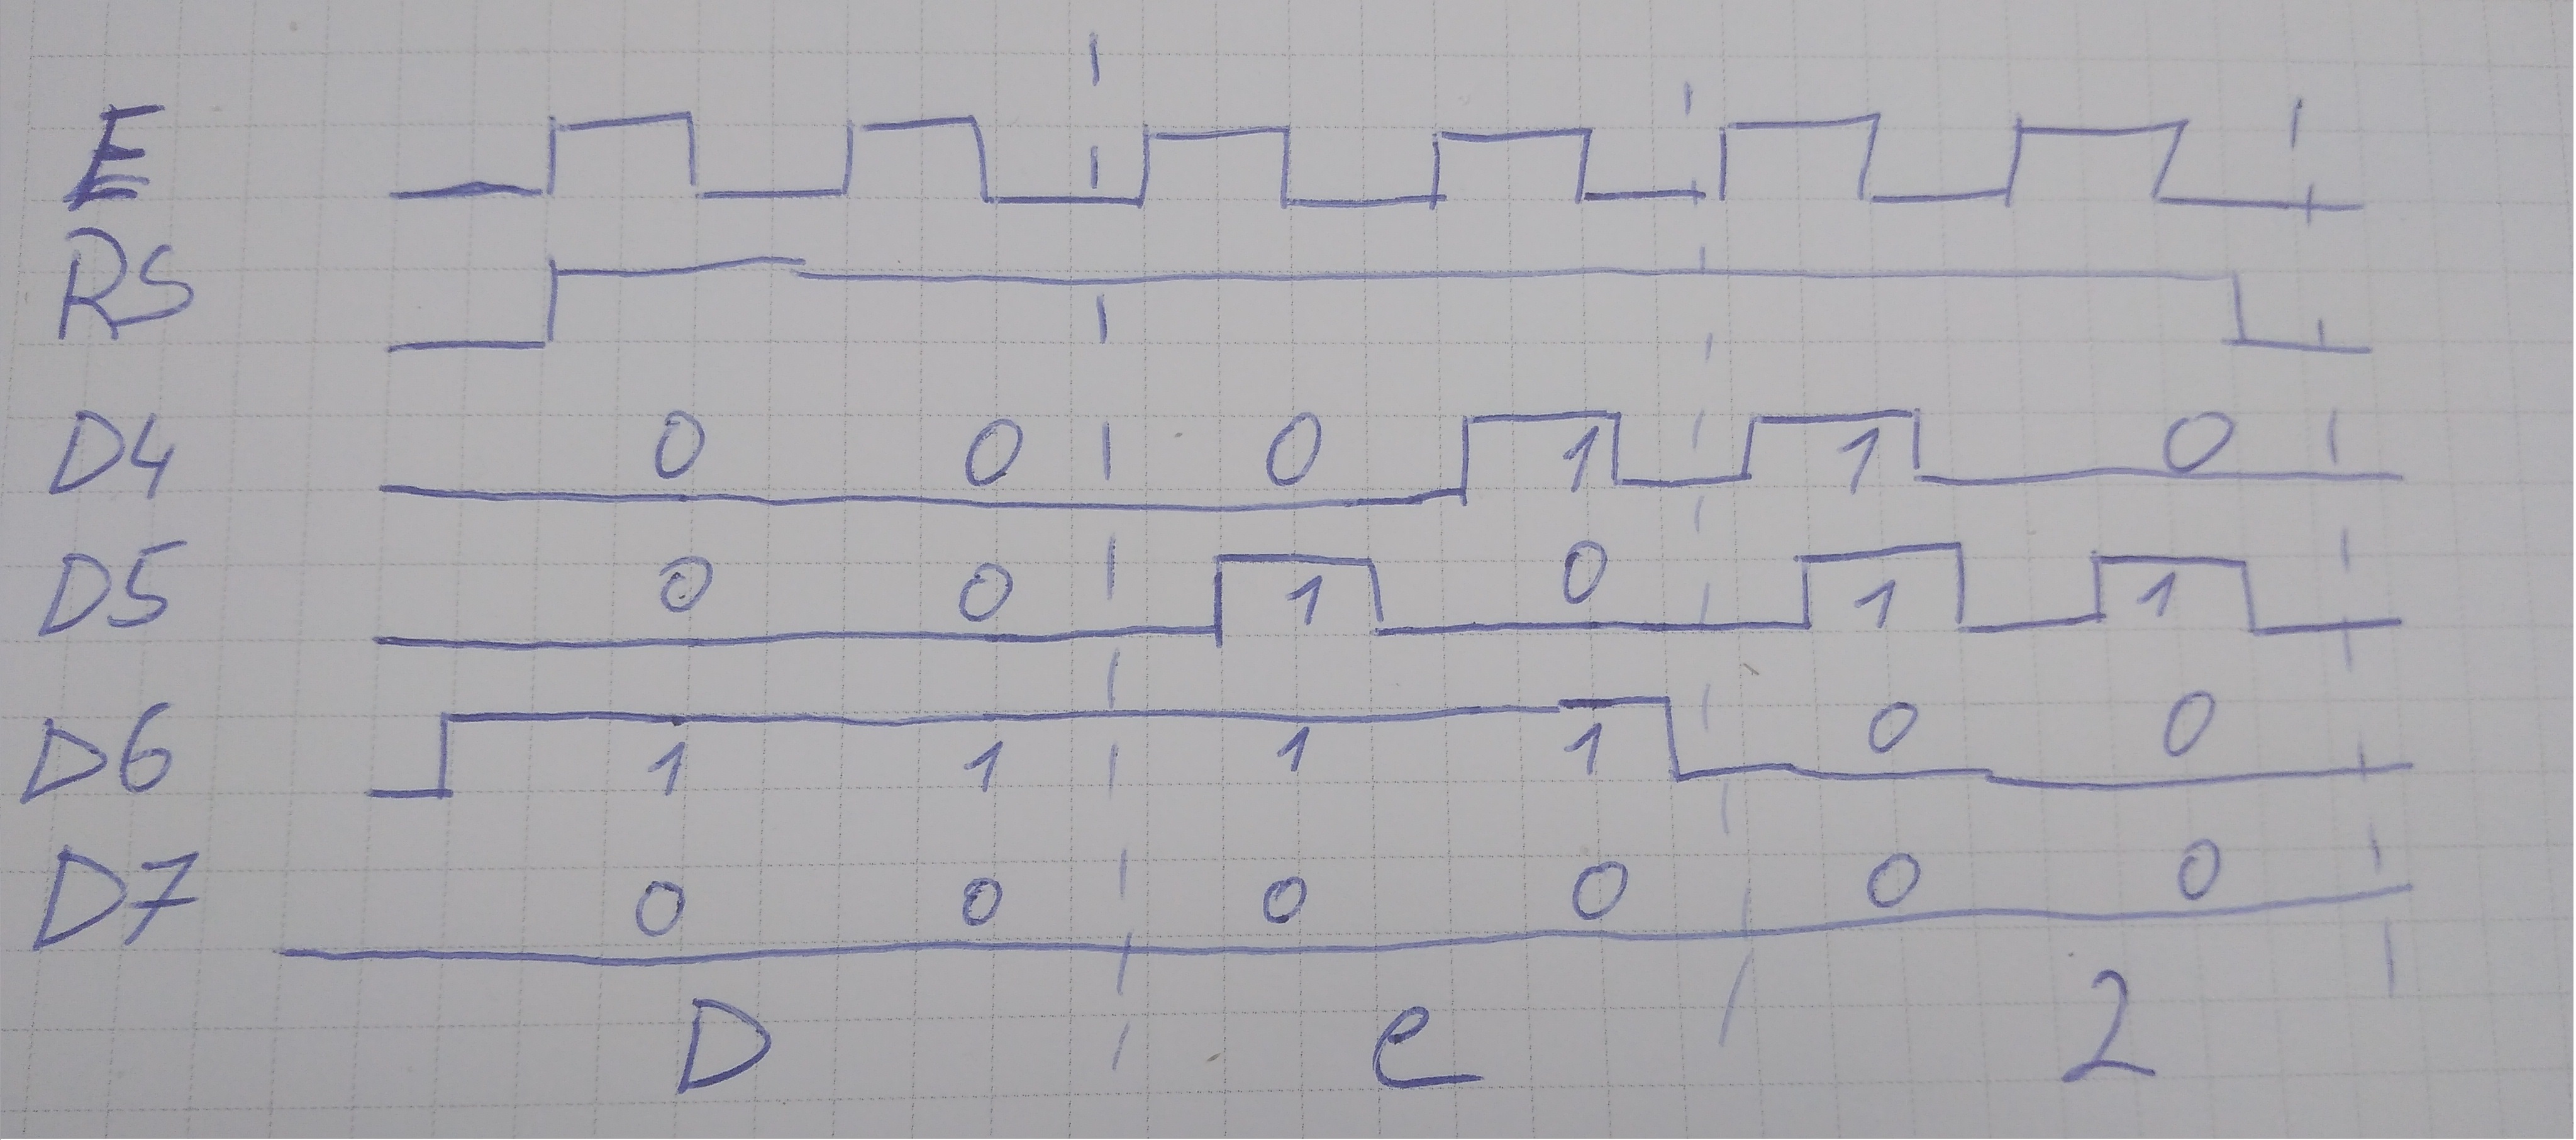 E
RS
D4 0 0 0 1 1 0
D5 0 0 1 0 1 1
D6 1 1 1 1 0 0
D7 0 0 0 0 0 0
D e 2